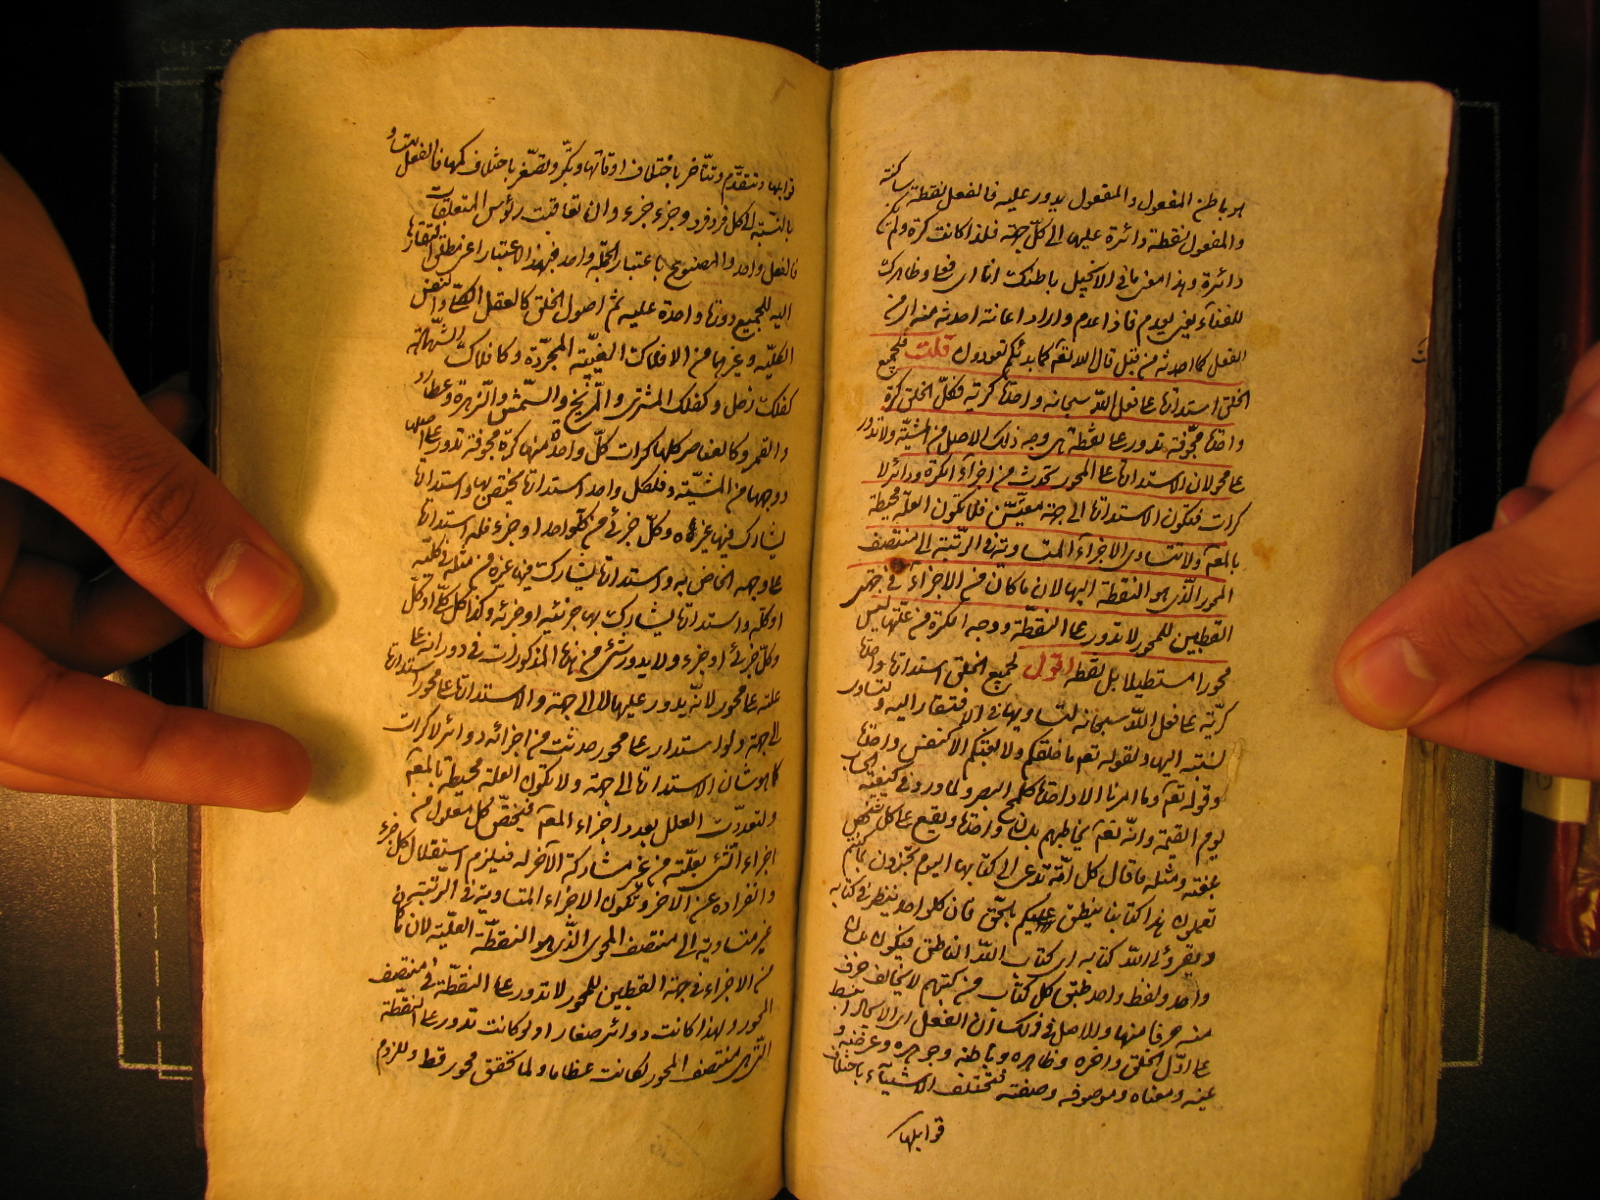 هو باطن المفعول والمفعول يدور عليه فالفعل نقطة ساكنة
والمفعول نقطة دائرة عليها الى كلّ جهة فلذا كانت كرة ولم تكن
دائرة وهذا معنى ما في الانجيل باطنك انا اي فعلي وظاهرك
للفناء يعني يعدم فاذا عدم واراد اعادته احدثه منه اي من
الفعل كما احدثه من قبل قال الله تعٰ كما بدئكم تعودون قلت فجميع
الخلق استدارتها على فعل الله سبحانه واحدها كرتة فكلّ الخلق كرة
واحدة مجوّفة تدور على نقطة هي وجه ذلك الاصل من المشيّة ولا تدور
على محور لان الاستدارة على المحور تحدث من اجزاء الكرة دوائر لا
كرات فتكون الاستدارة الى جهة معيّنتين فلا تكون العلّة محيطة
بالمعٰ ولا تتساوى الاجزاء المتساوية في الرتبة الى منتصف
المحور الذي هو النقطة اليها لان ما كان من الاجزاء في جهتي
القطبين للمحور لا تدور على النقطة ووجه الكرة من علّتها ليس
محورا مستطيلا بل نقطة اقول لجميع الخلق استدارة واحدة
كريّة على فعل الله سبحانه لتساويها في الافتقار اليه وتساوى
نسبته اليها ولقوله تعٰ ما خلقكم ولا بعثكم الا كنفس واحدة
وقوله تعٰ وما امرنا الا واحدة كلمح البصر ولما ورد في كيفيّة الحساب
يوم القيمة وانّه تعٰ يخاطبهم بلسان واحد ويقع على كل شخص
بلغته ومثله ما قال كل امّة تدعى الى كتابها اليوم تجزون ما كنتم
تعملون هذا كتابنا ينطق عليكم بالحق فان كل واحد ينظر في كتابه
ويقرؤ في الله كتابه اي كتاب الله الناطق فيكون بلسان
واحد ولفظ واحد طبق كل كتاب من كتبهم لا يخالف حرف
منه حرفا منها والاصل في ذلك ان الفعل اي الايجاد انبسط
على اوّل الخلق واخره وظاهره وباطنه وجوهره وعرضه و
عينه ومعناه وموصوفه وصفته فتختلف الاشياء باختلاف
قوابلها
قوابلها وتتقدّم وتتأخر باختلاف اوقاتها وتكبر وتصغّر باختلاف كمّها فالفعل متساو
بالنسبة الى كل فرد فرد وجزء جزء وان تعاقبت رؤس المتعلقات
فالفعل واحد والمصنوع باعتبار الجملة واحد فبهذا الاعتبار اعني مطلق افتقارها
اليه للجميع دورة واحدة عليه ثم اصول الخلق كالعقل الكلّي والنفس
الكليّة وغيرها من الافلاك الغيبيّة المجرّدة وكافلاك الشهادة
كفلك زحل وكفلك المشتري والمريخ والشمس والزهرة وعطارد
والقمر وكالعناصر كلها كرات كلّ واحدة منها كرة مجوفة تدور على اصلها
ووجهها من المشيّة فلكل واحد استدارة تختصّ بها واستدارة
يشارك فيها غيره وكلّ جزئي من كل واحد او جزء فله استدارة
على وجهه الخاص به واستدارة يشارك فيها غيره
او كلّه واستدارة يشارك بها جزئيه او جزئه وكذا كل كلّي او كلّ
وكل جزئي او جزء ولا يدور شئ من هذه المذكورات في دورانه على
علته على محور لانّه يدور عليها لا الى جهة والاستدارة على محور استدارة
الى جهة ولو استدار على محور حدثت من اجزائه دوائر لا كرات
كما هو شان الاستدارة الى جهة ولا تكون العلة محيطة بالمعٰ
ولتعددت العلل بعدد اجزاء المعٰ فيختصّ كل معلول من
اجزاء الشئ بعلّته من غير مشاركة الآخر له فيلزم استقلال كل جزء
وانفراده عن الآخر وتكون الاجزاء المتساوية في الرتبة
غير متساوية الى منتصف المحور الذي هو النقطة العليّة لان ما كان
من الاجزاء في جهة القطبين للمحور لا تدور على النقطة في منتصف
المحور ولهذا كانت دوائر صغار او لو كانت تدور على النقطة
التي هي منتصف المحور لكانت عظاما ولما تحقق محور قط وللزوم